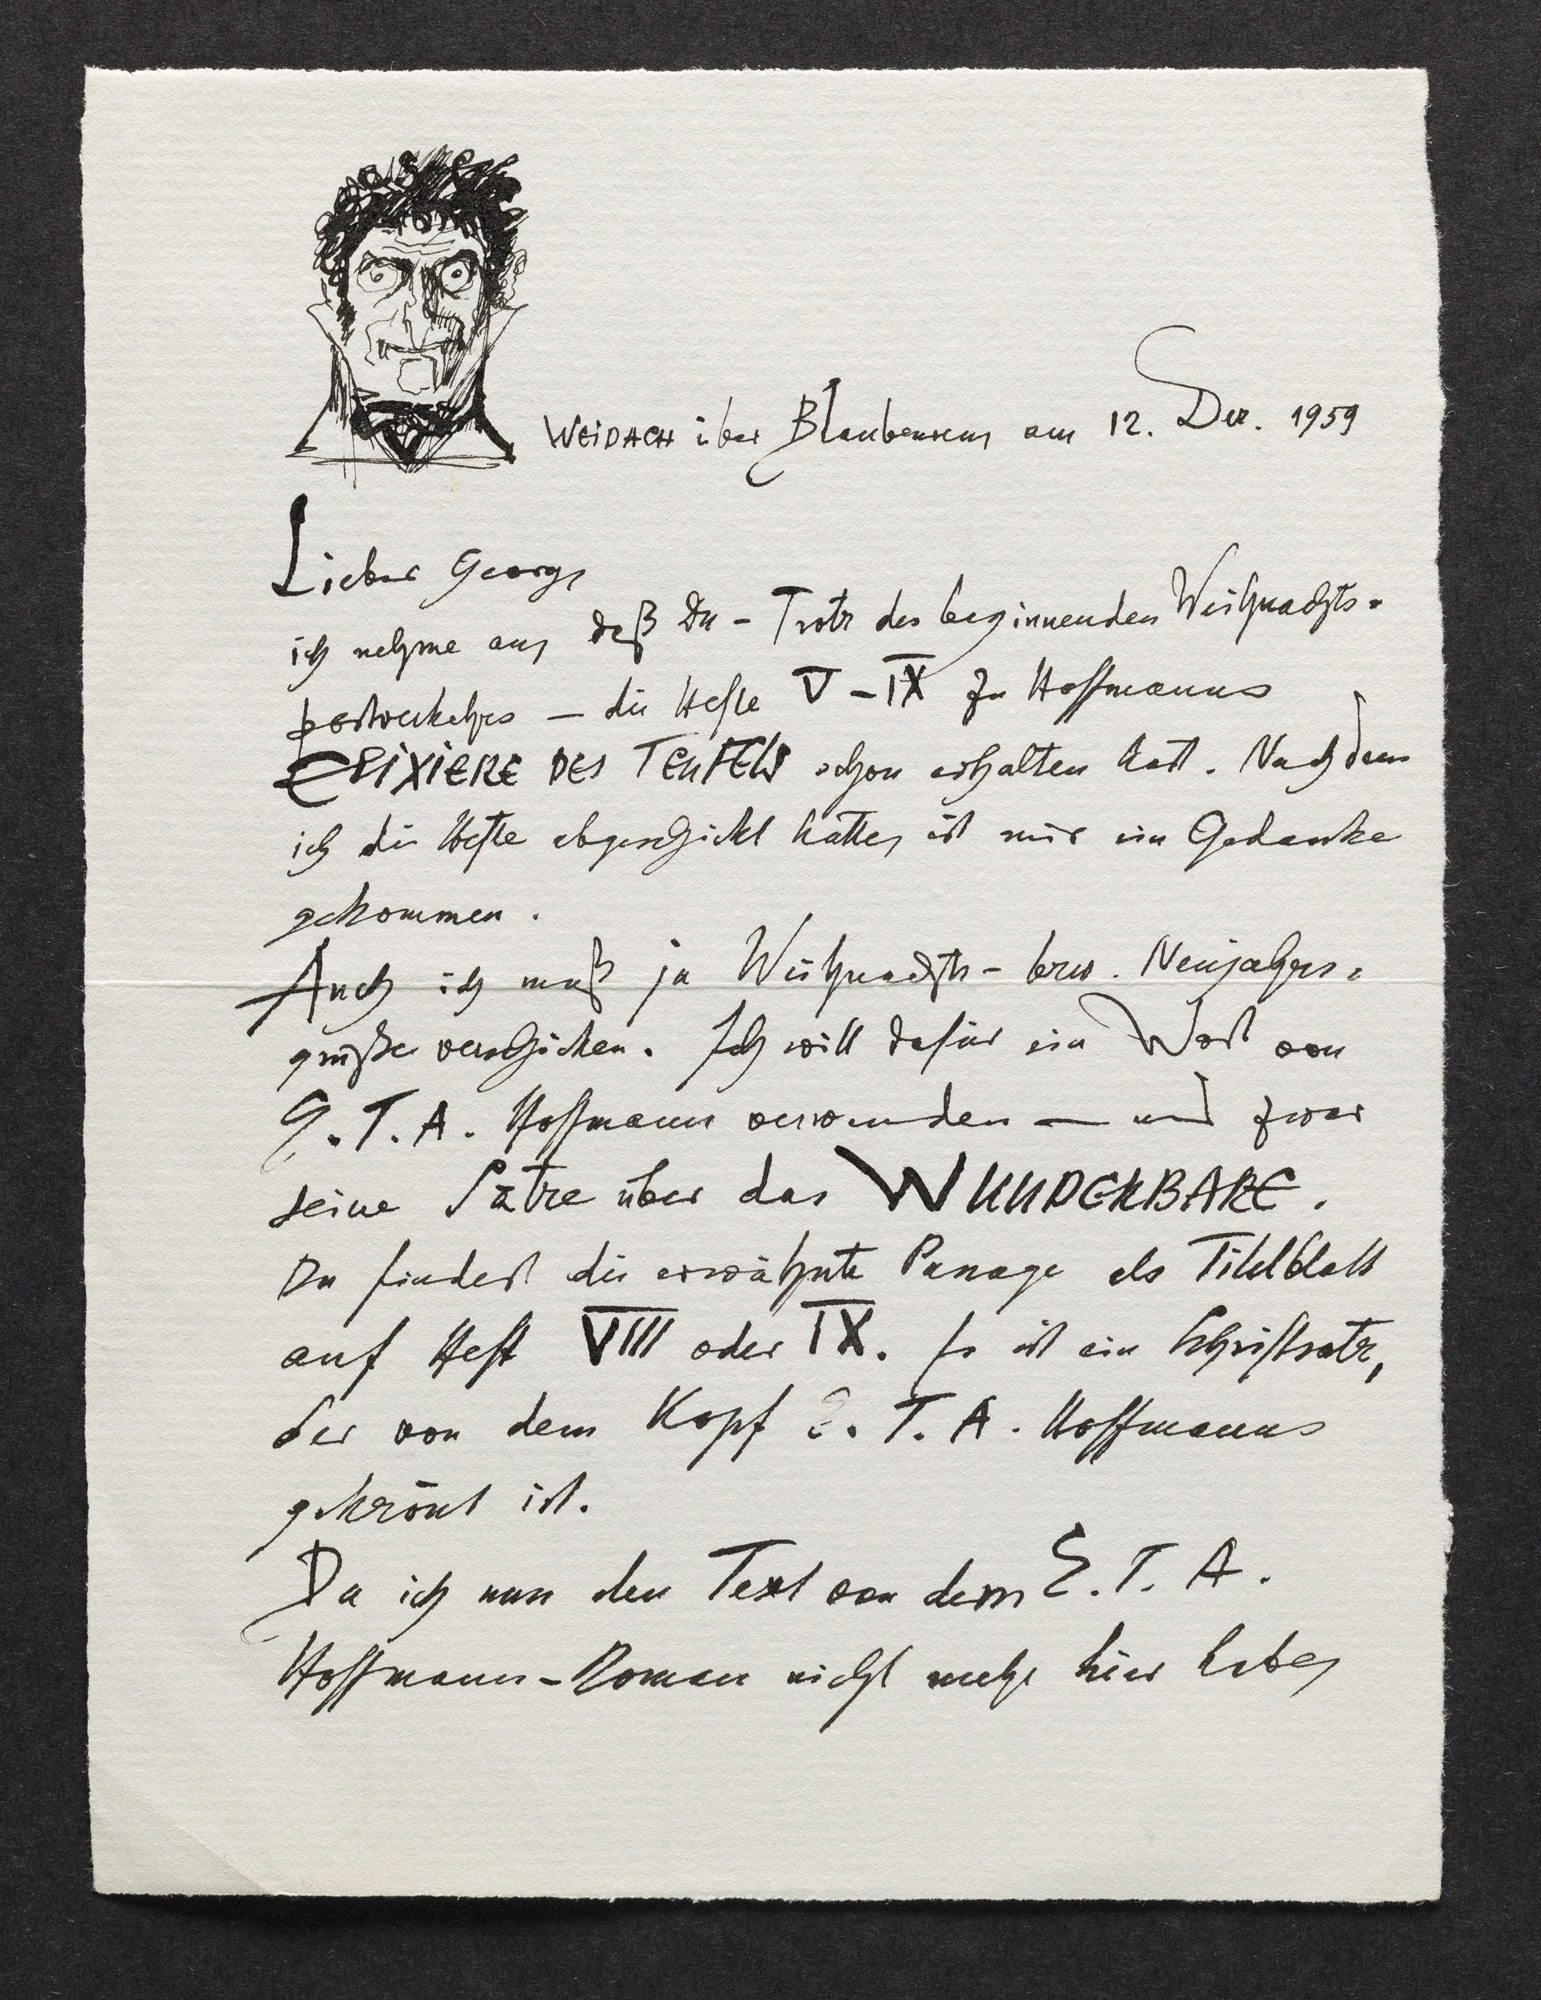 WEIDACH über Blaubeuren am 12. Dez. 1959
Lieber Georg,
ich nehme an, daß Du – Trotz des beginnenden Weihnachts-
postverkehrs – die Hefte V – IX zu Hoffmanns
ELIXIERE DES TEUFELS schon erhalten hast. Nachdem
ich die Hefte abgeschickt hatte, ist mir ein Gedanke
gekommen.
Auch ich muß ja Weihnachts- bzw. Neujahrs-
grüße verschicken. Ich will dafür ein Wort von
E. T. A. Hoffmann verwenden – und zwar
seine Sätze über das WUNDERBARE.
Du findest die erwähnte Passage als Titelblatt
auf Heft VIII oder IX. Es ist ein Schriftsatz,
der von dem Kopf E. T. A. Hoffmanns
gekrönt ist.
Da ich nun den Text von dem E. T. A.
Hoffmann-Roman nicht mehr hier habe,